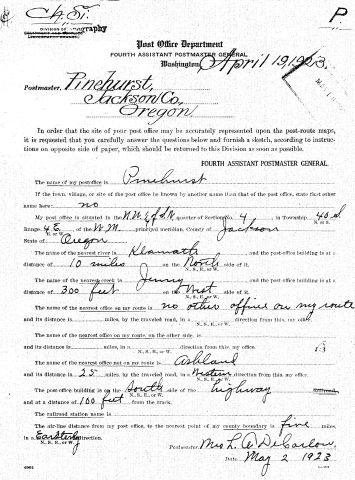 Post Office Department
FOURTH ASSISTANT POSTMASTER GENERAL
Washington April 19, 1923.
Postmaster, Pinehurst,
Jackson Co,
Oregon
In order that the site of your post office may be accurately represented upon the post-route maps,
it is requested that you carefully answer the questions below and furnish a sketch, according to instruc-
tions on opposite side of paper, which should be returned to this Division as soon as possible.
FOURTH ASSISTANT POSTMASTER GENERAL.
The name of my post office is Pinehurst
If the town, village, or site of the post office be known by another name than that of the post office, state that other
name here: no
My post office is situated in the quarter of Section No. 4, in Township 40 S
N. or S.
Range 4E, of the W.M. principal meridian, County of Jackson
E. or W.
State of Oregon
The name of the nearest river is Klamath and the post-office building is at a
distance of 10 miles on the North side of it.
N., S., E., or W.
The name of the nearest creek is Jenny and the post-office building is at a
distance of 300 feet on the West side of it.
N., S., E., or W.
The name of the nearest office on my route is no other office on my route
and its distance is miles, by the traveled road, in a direction from this, my office.
N., S., E., or W.
The name of the nearest office on my route, on the other side, is
and its distance is miles, in a direction from this, my office.
N., S., E., or W.
The name of the nearest office not on my route is Ashland
and its distance is 25 miles, by the traveled road, in a Western direction from this, my office.
N., S., E., or W.
The post-office building is on the South side of the highway
N., S., E., or W.
and at a distance of 100 feet from the track.
The railroad station name is
The air-line distance from my post office, to the nearest point of my county boundary is five miles,
in Easterly direction.
N., S., E., or W.
Postmaster, Mrs L. A. DeCarlow
Date, May 2 1923